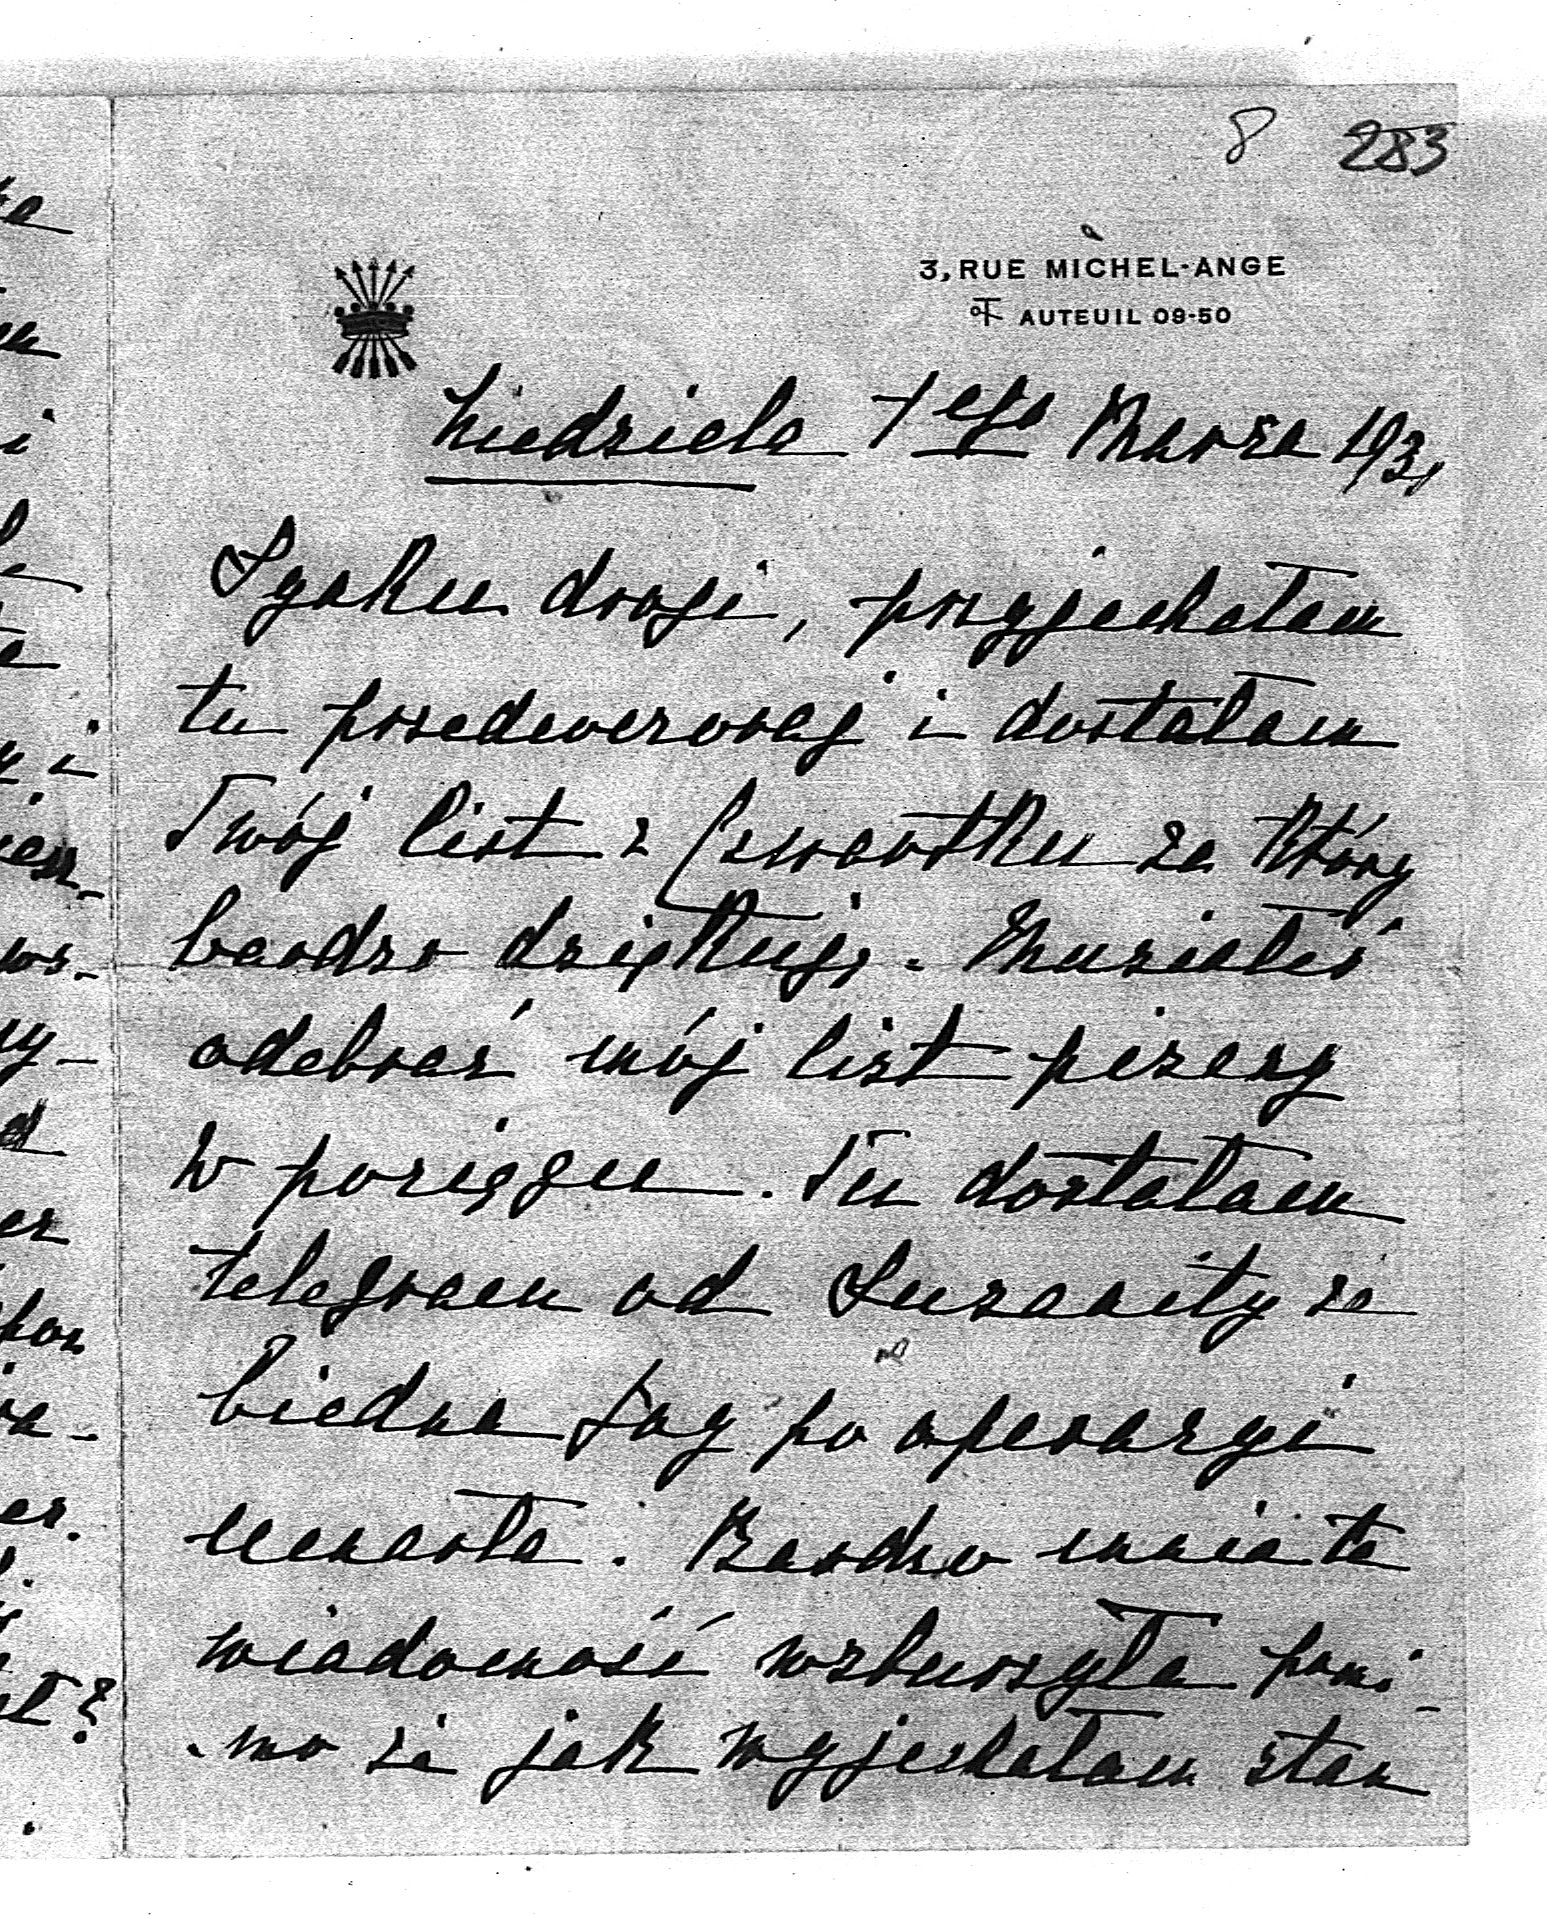 8 283
3, RUE MICHEL-ANGE
AUTEUIL 09-50
Niedziela 1ego Marca 1931
Synku drogi, przyjechałam
tu przedewczoraj i dostałam
Twój list z Czwartku za który
bardzo dziękuję. Musiałeś
odebrać mój list pisany
w pociągu. Tu dostałam
telegram od Suzanity że
biedna po operacyi
umarła. Bardzo mnie ta
wiadomość wzburzyła pomi-
-mo że jak wyjechałam stan